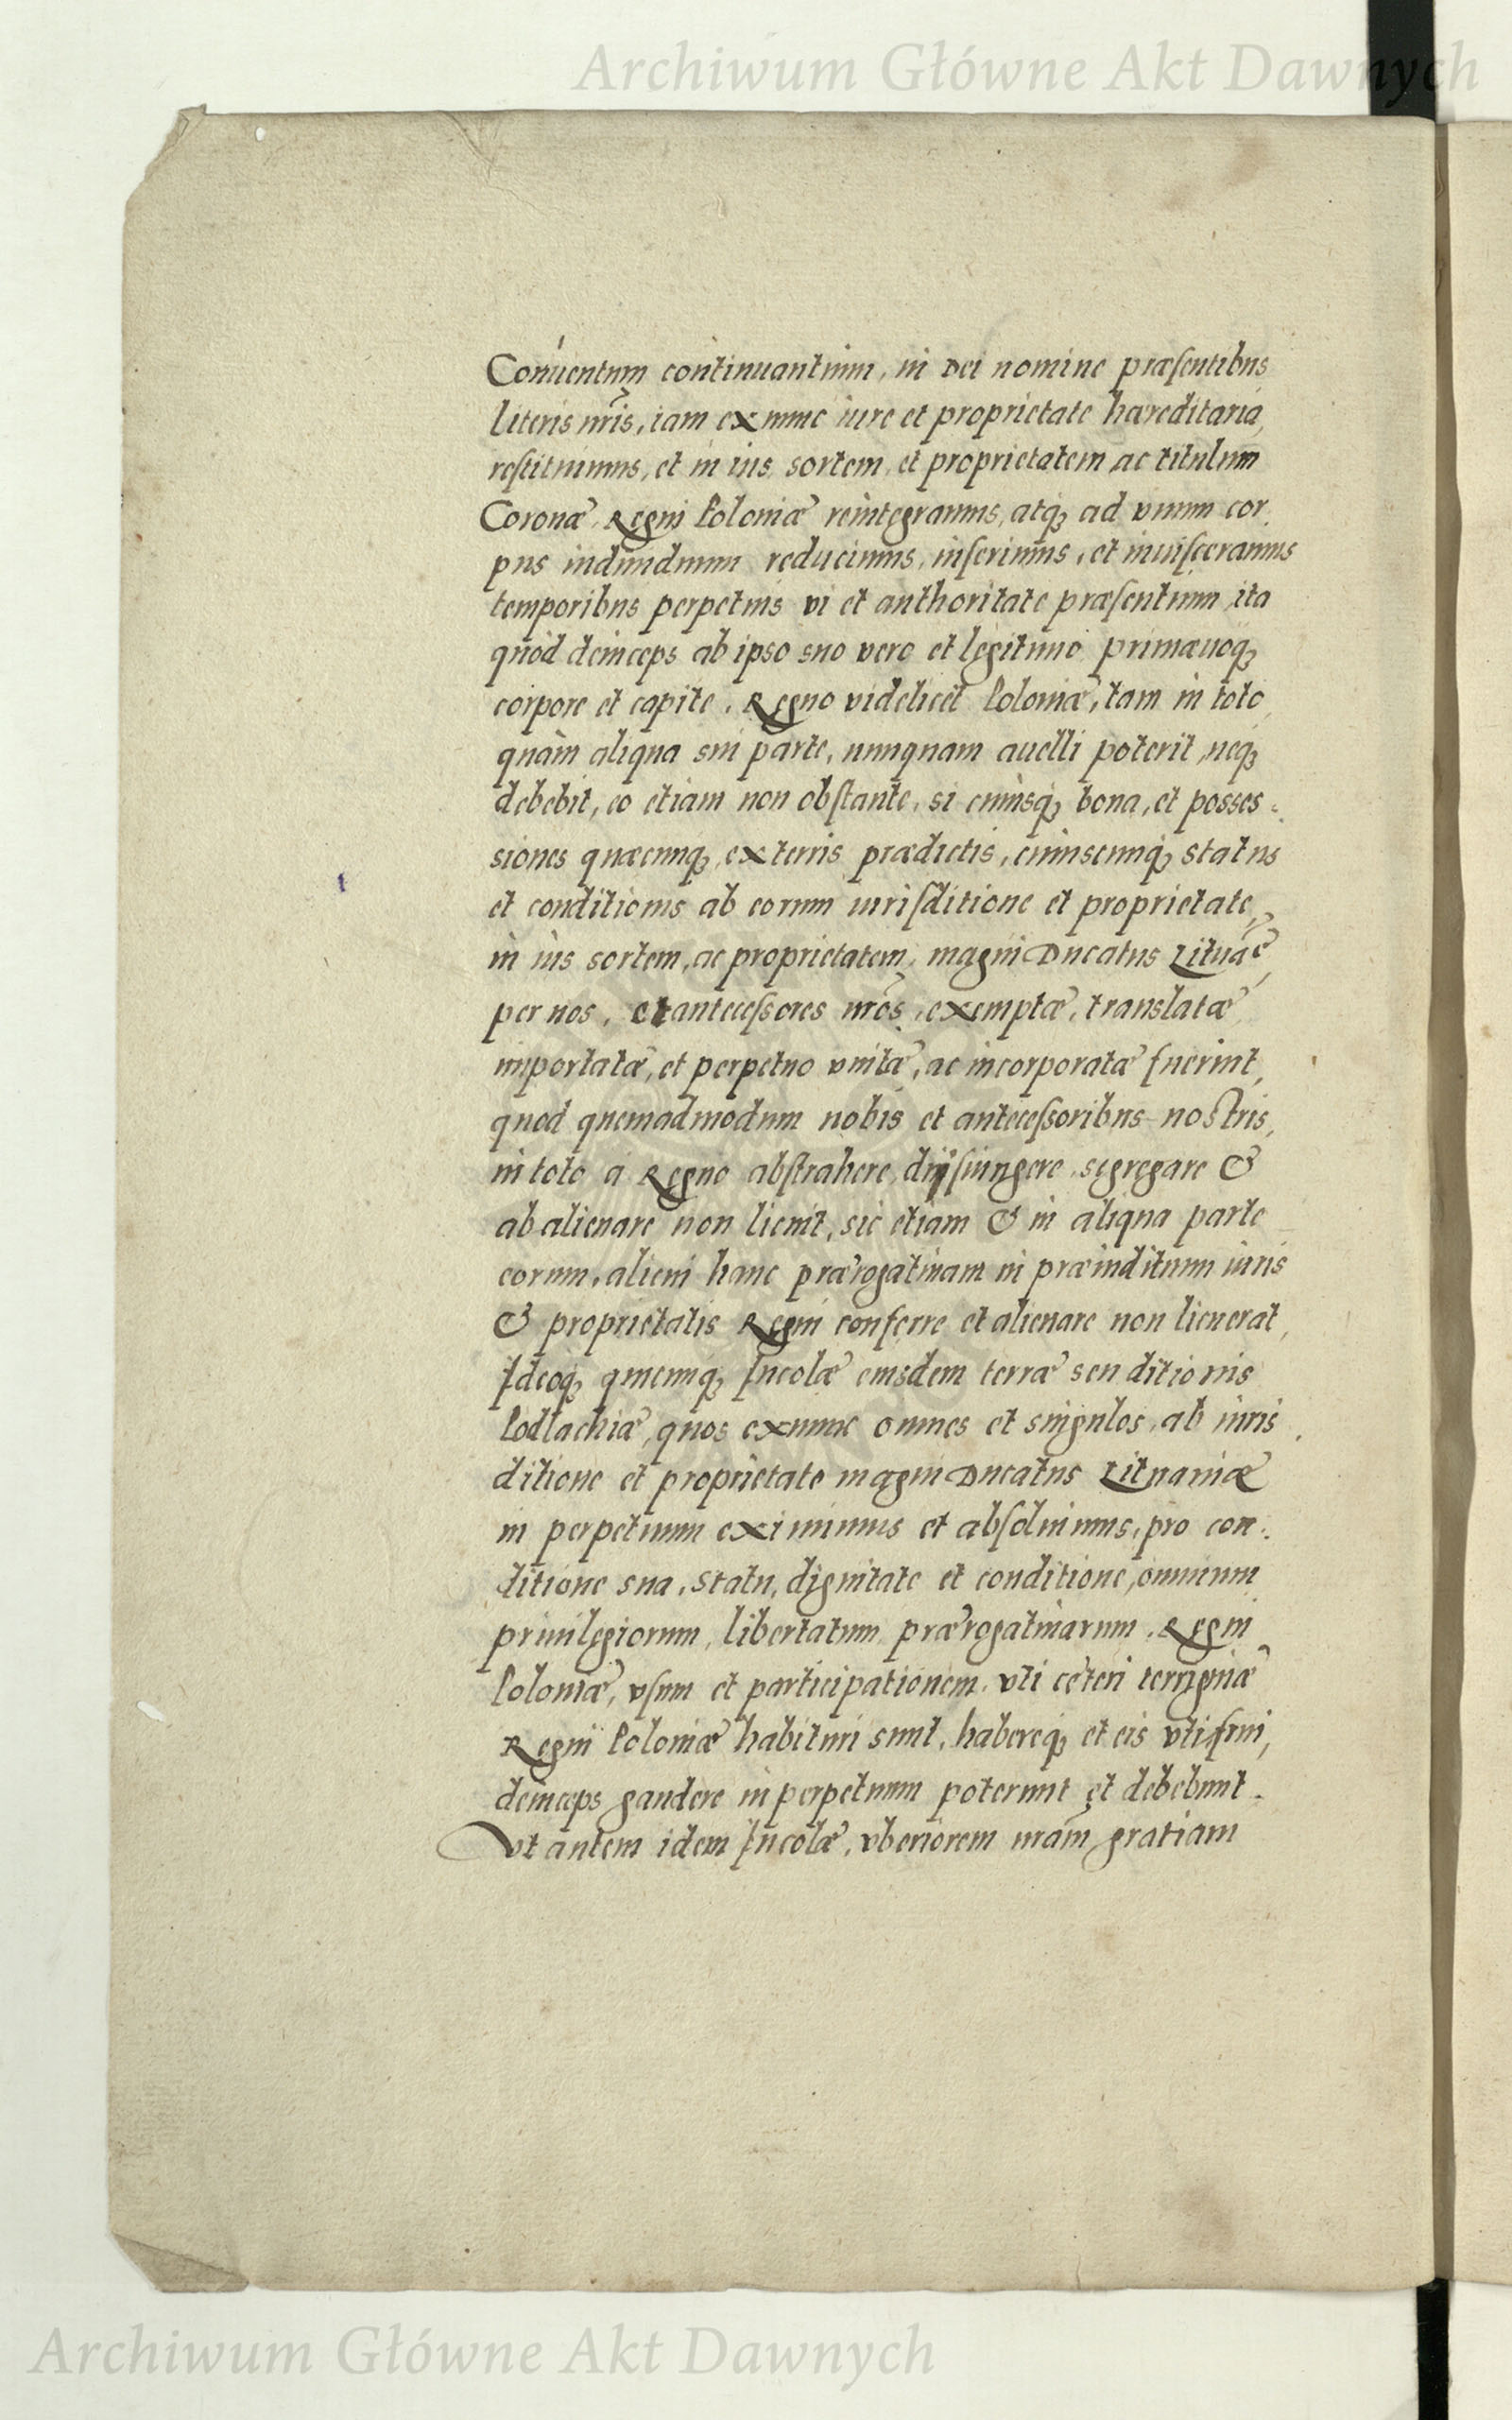 Archiwum Główne Akt Dawnych
Conuentum continuantium, in Dei nomine præsentibus
literis nr̃is, iam ex nunc iure et proprietate hæreditaria,
restituimus, et in ius, sortem, et proprietatem, ac titulum
Coronæ, Regni Poloniæ reintegramus, atq; ad vnum cor,
pus indiuiduum reducimus, inserimus, et inuisceramus
temporibus perpetuis vi et authoritate præsentium, ita
quòd deinceps ab ipso suo vero et legitimo primæuoq;
corpore et capite, Regno videlicet Poloniæ, tam in toto,
quàm aliqua sui parte, nunquam auelli poterit, neq;
debebit, eo etiam non obstante, si cuiusq; bona, et posses=
siones quæcunq; ex terris prædictis, cuiuscunq; status
et conditionis ab eorum iurisditione et proprietate,
in ius sortem, ac proprietatem, magni Ducatus Lituãe,
per nos, et antecessores nr̃os, exemptæ, translatæ,
importatæ, et perpetuo vnitæ, ac incorporatæ fuerint,
quod quemadmodum nobis et antecessoribus nostris,
in toto a Regno abstrahere, diisiungere, segregare &
ab alienare non licuit, sic etiam & in aliqua parte
eorum, alicui hanc prærogatiuam in præiuditium iuris
& proprietatis Regni conferre et alienare non licuerat,
Ideoq; quicunq; Incolæ eiusdem terræ seu ditionis
Podlachiæ, quos ex nunc omnes et singulos, ab iuris,
ditione et proprietate magni Ducatus Lituaniæ
in perpetuum eximimus et absoluimus, pro con:
ditione sua, statu, dignitate et conditione, omnium
priuilegiorum, libertatum, prærogatiuarum, Regni
Poloniæ, vsum et participationem, vti cæteri terrigenæ
Regni Poloniæ habituri sunt, habereq; et eis vti frui,
deinceps gaudere in perpetuum poterunt et debebunt.
Vt autem idem Incolæ, vberiorem nr̃am gratiam
Archiwum Główne Akt Dawnych